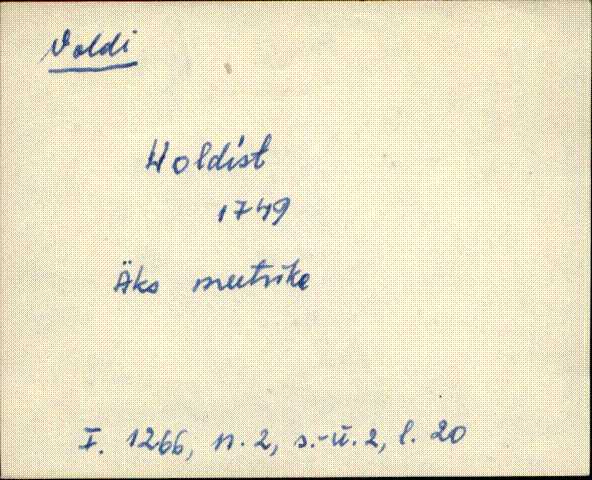 Voldi
Woldist
1749
Äks meetrika
F. 1266, n. 2, s.-ü. 2, l. 20